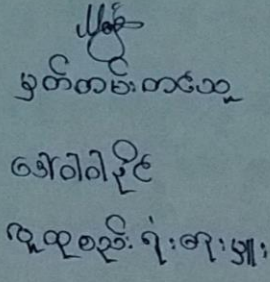 မှတ်တမ်းတင်သူ
ဒေါ်ဝါဝါခိုင်
လူထုစည်းရုံးရေးမှူး